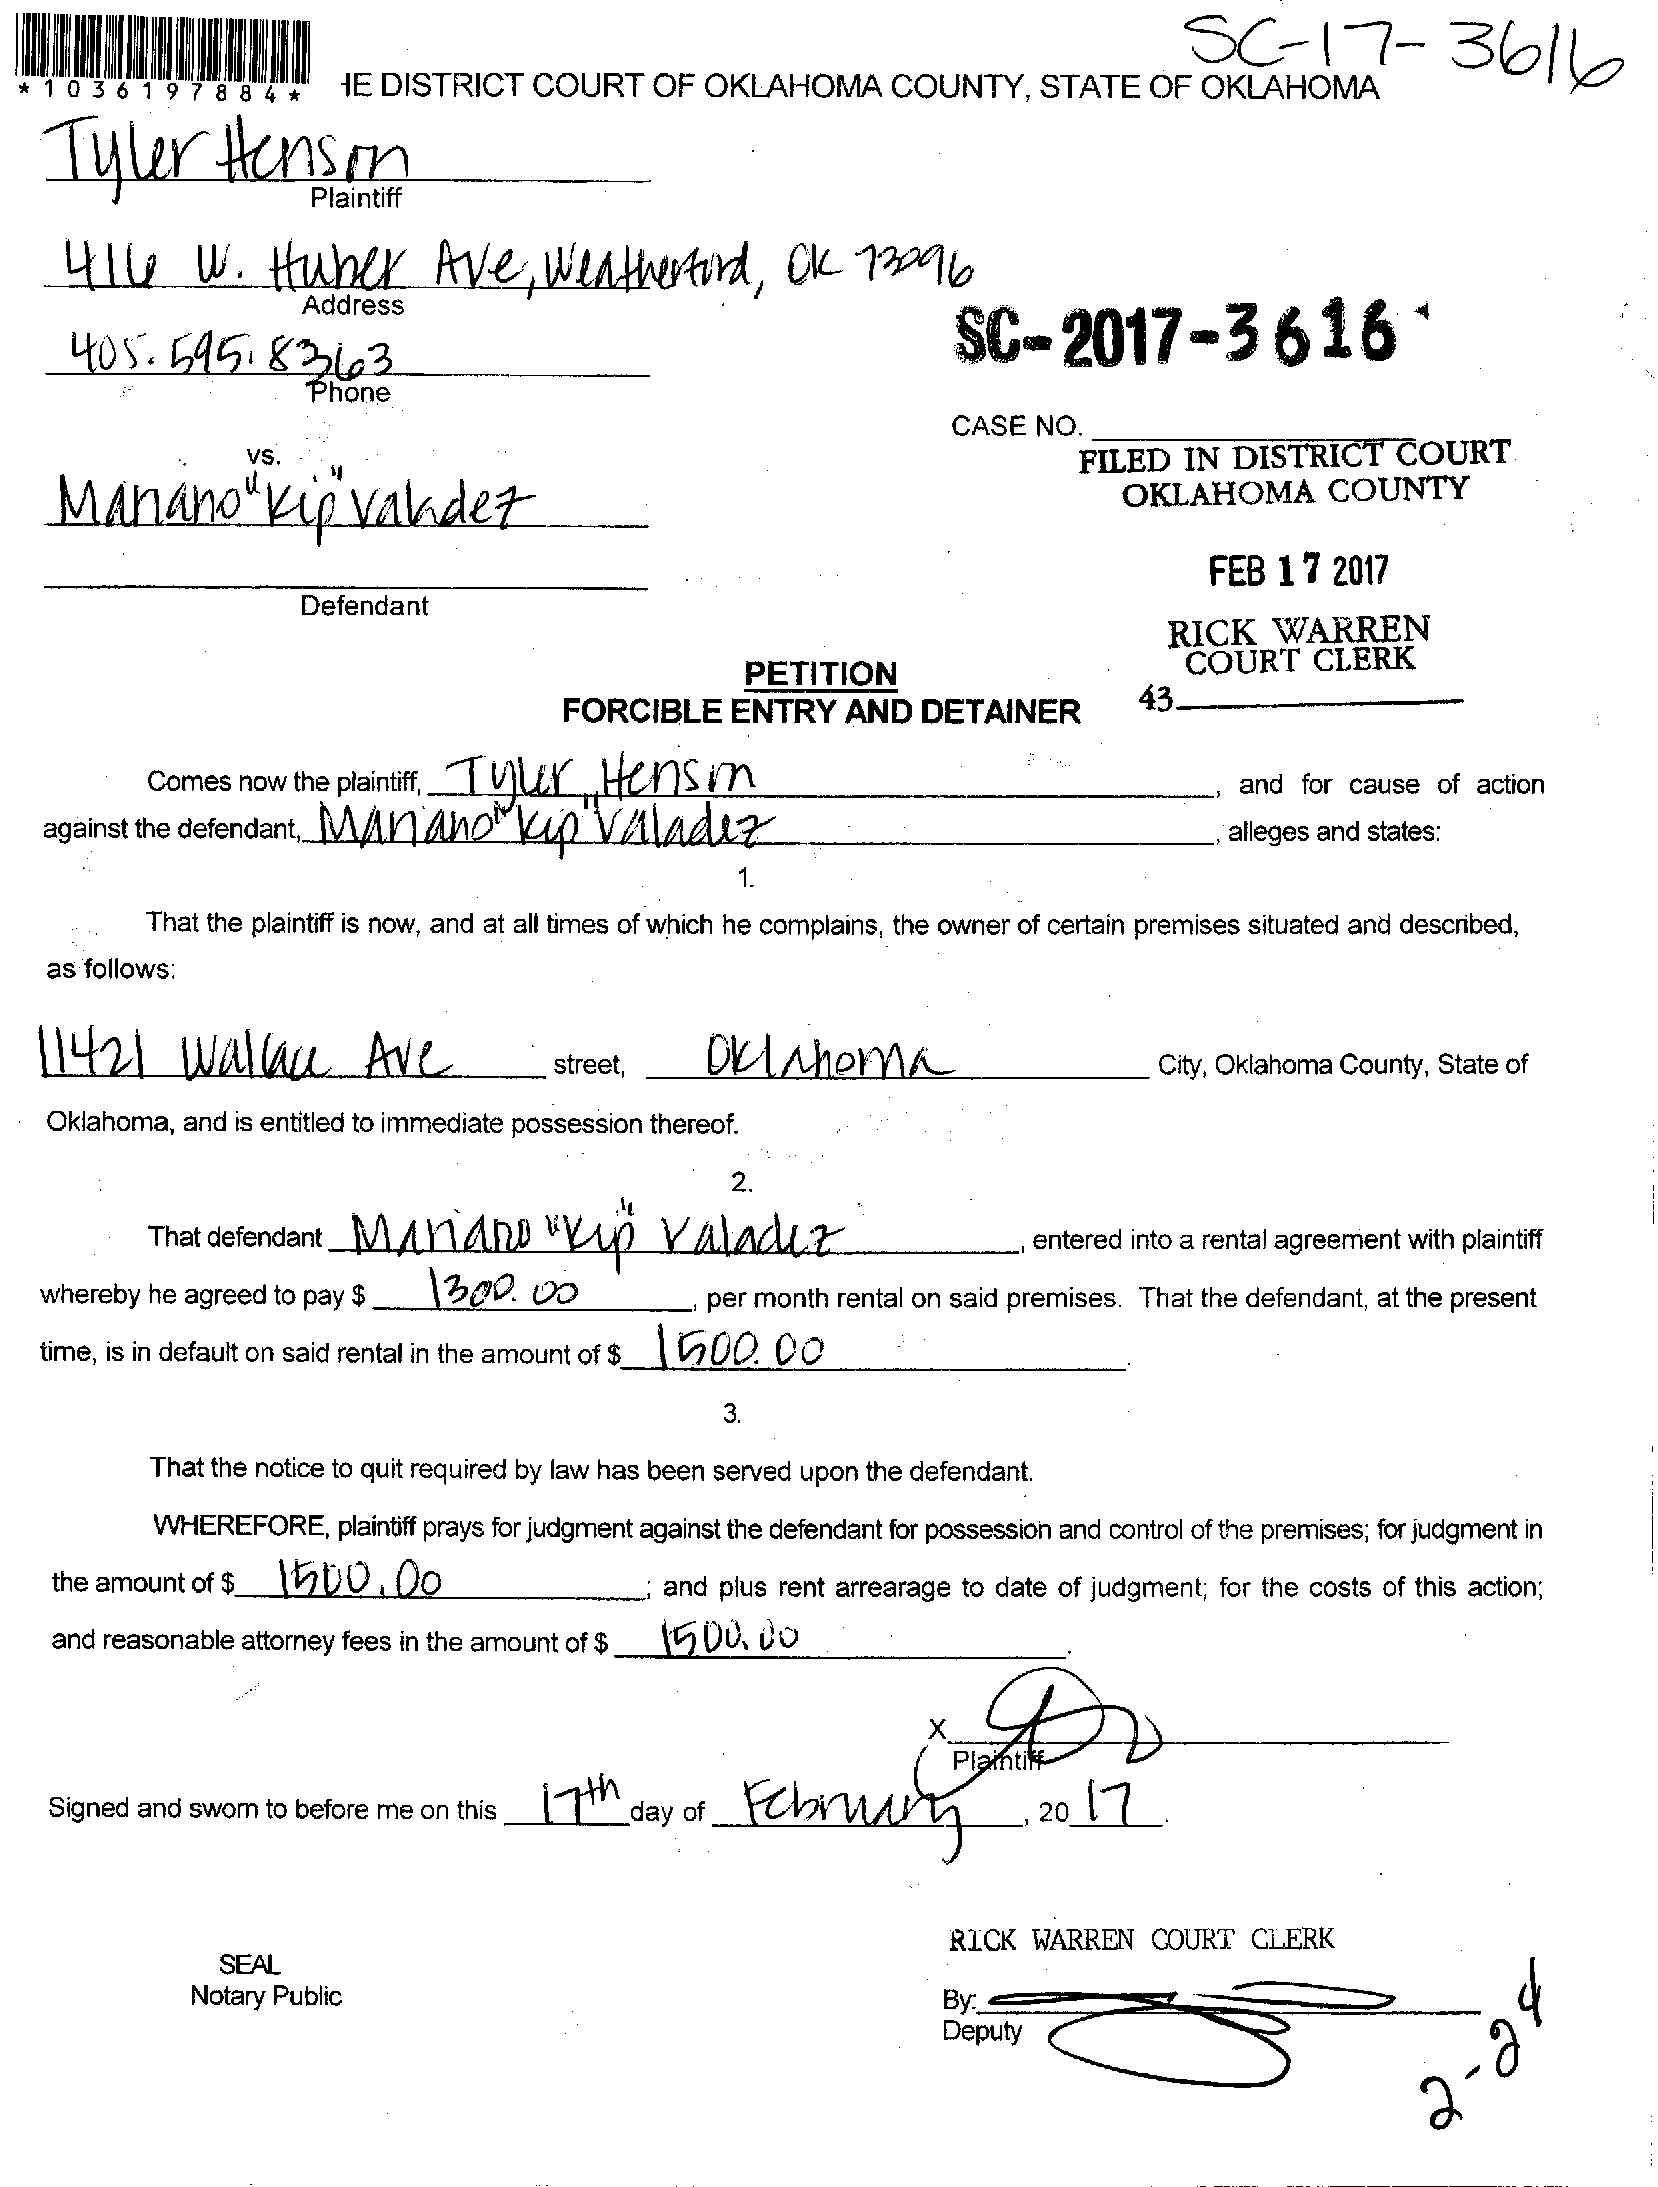 SC-17-3616
*1036197884*
HE DISTRICT COURT OF OKLAHOMA COUNTY, STATE OF OKLAHOMA
Tyler Henson
Plaintiff
416 W. Huber Ave, Weatherford, OK 73096
Address
405.595.8363
Phone
SC-2017-3616
CASE NO.
vs.
FILED IN DISTRICT COURT
OKLAHOMA COUNTY
Mariano "Kip" Valadez
FEB 17 2017
Defendant
RICK WARREN
COURT CLERK
PETITION
43
FORCIBLE ENTRY AND DETAINER
Comes now the plaintiff, Tyler Henson, and for cause of action
against the defendant, Mariano "Kip" Valadez, alleges and states:
1.
That the plaintiff is now, and at all times of which he complains, the owner of certain premises situated and described,
as follows:
11421 Wallace Ave street, Oklahoma City, Oklahoma County, State of
Oklahoma, and is entitled to immediate possession thereof.
2.
That defendant Mariano "Kip" Valadez, entered into a rental agreement with plaintiff
whereby he agreed to pay $ 1300.00, per month rental on said premises. That the defendant, at the present
time, is in default on said rental in the amount of $ 1500.00.
3.
That the notice to quit required by law has been served upon the defendant.
WHEREFORE, plaintiff prays for judgment against the defendant for possession and control of the premises; for judgment in
the amount of $ 1500.00; and plus rent arrearage to date of judgment; for the costs of this action;
and reasonable attorney fees in the amount of $ 1500.00.
X
Plaintiff
Signed and sworn to before me on this 17th day of February, 2017.
RICK WARREN COURT CLERK
SEAL
Notary Public
By:
Deputy
2-24